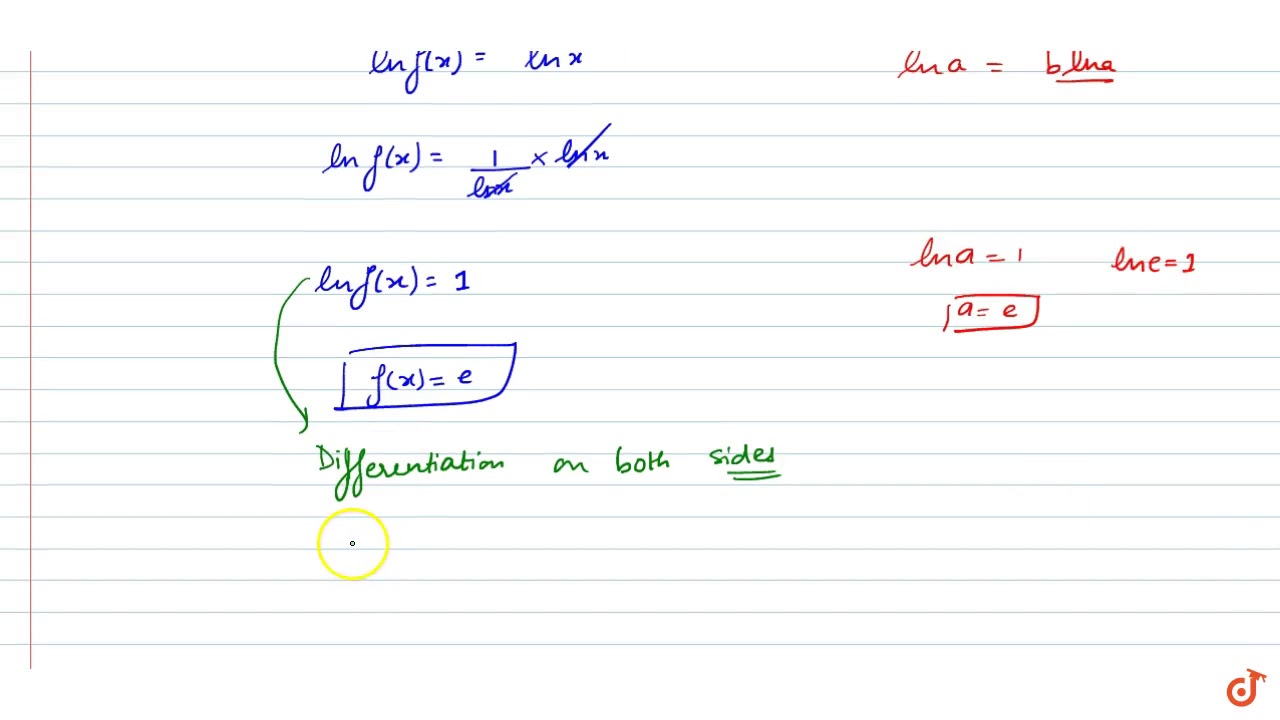 ln f(x) = ln x
ln a = b ln a
ln f(x) = 1/ln x × ln x
ln a = 1
ln e = 1
ln f(x) = 1
a = e
f(x) = e
Differentiation on both sides